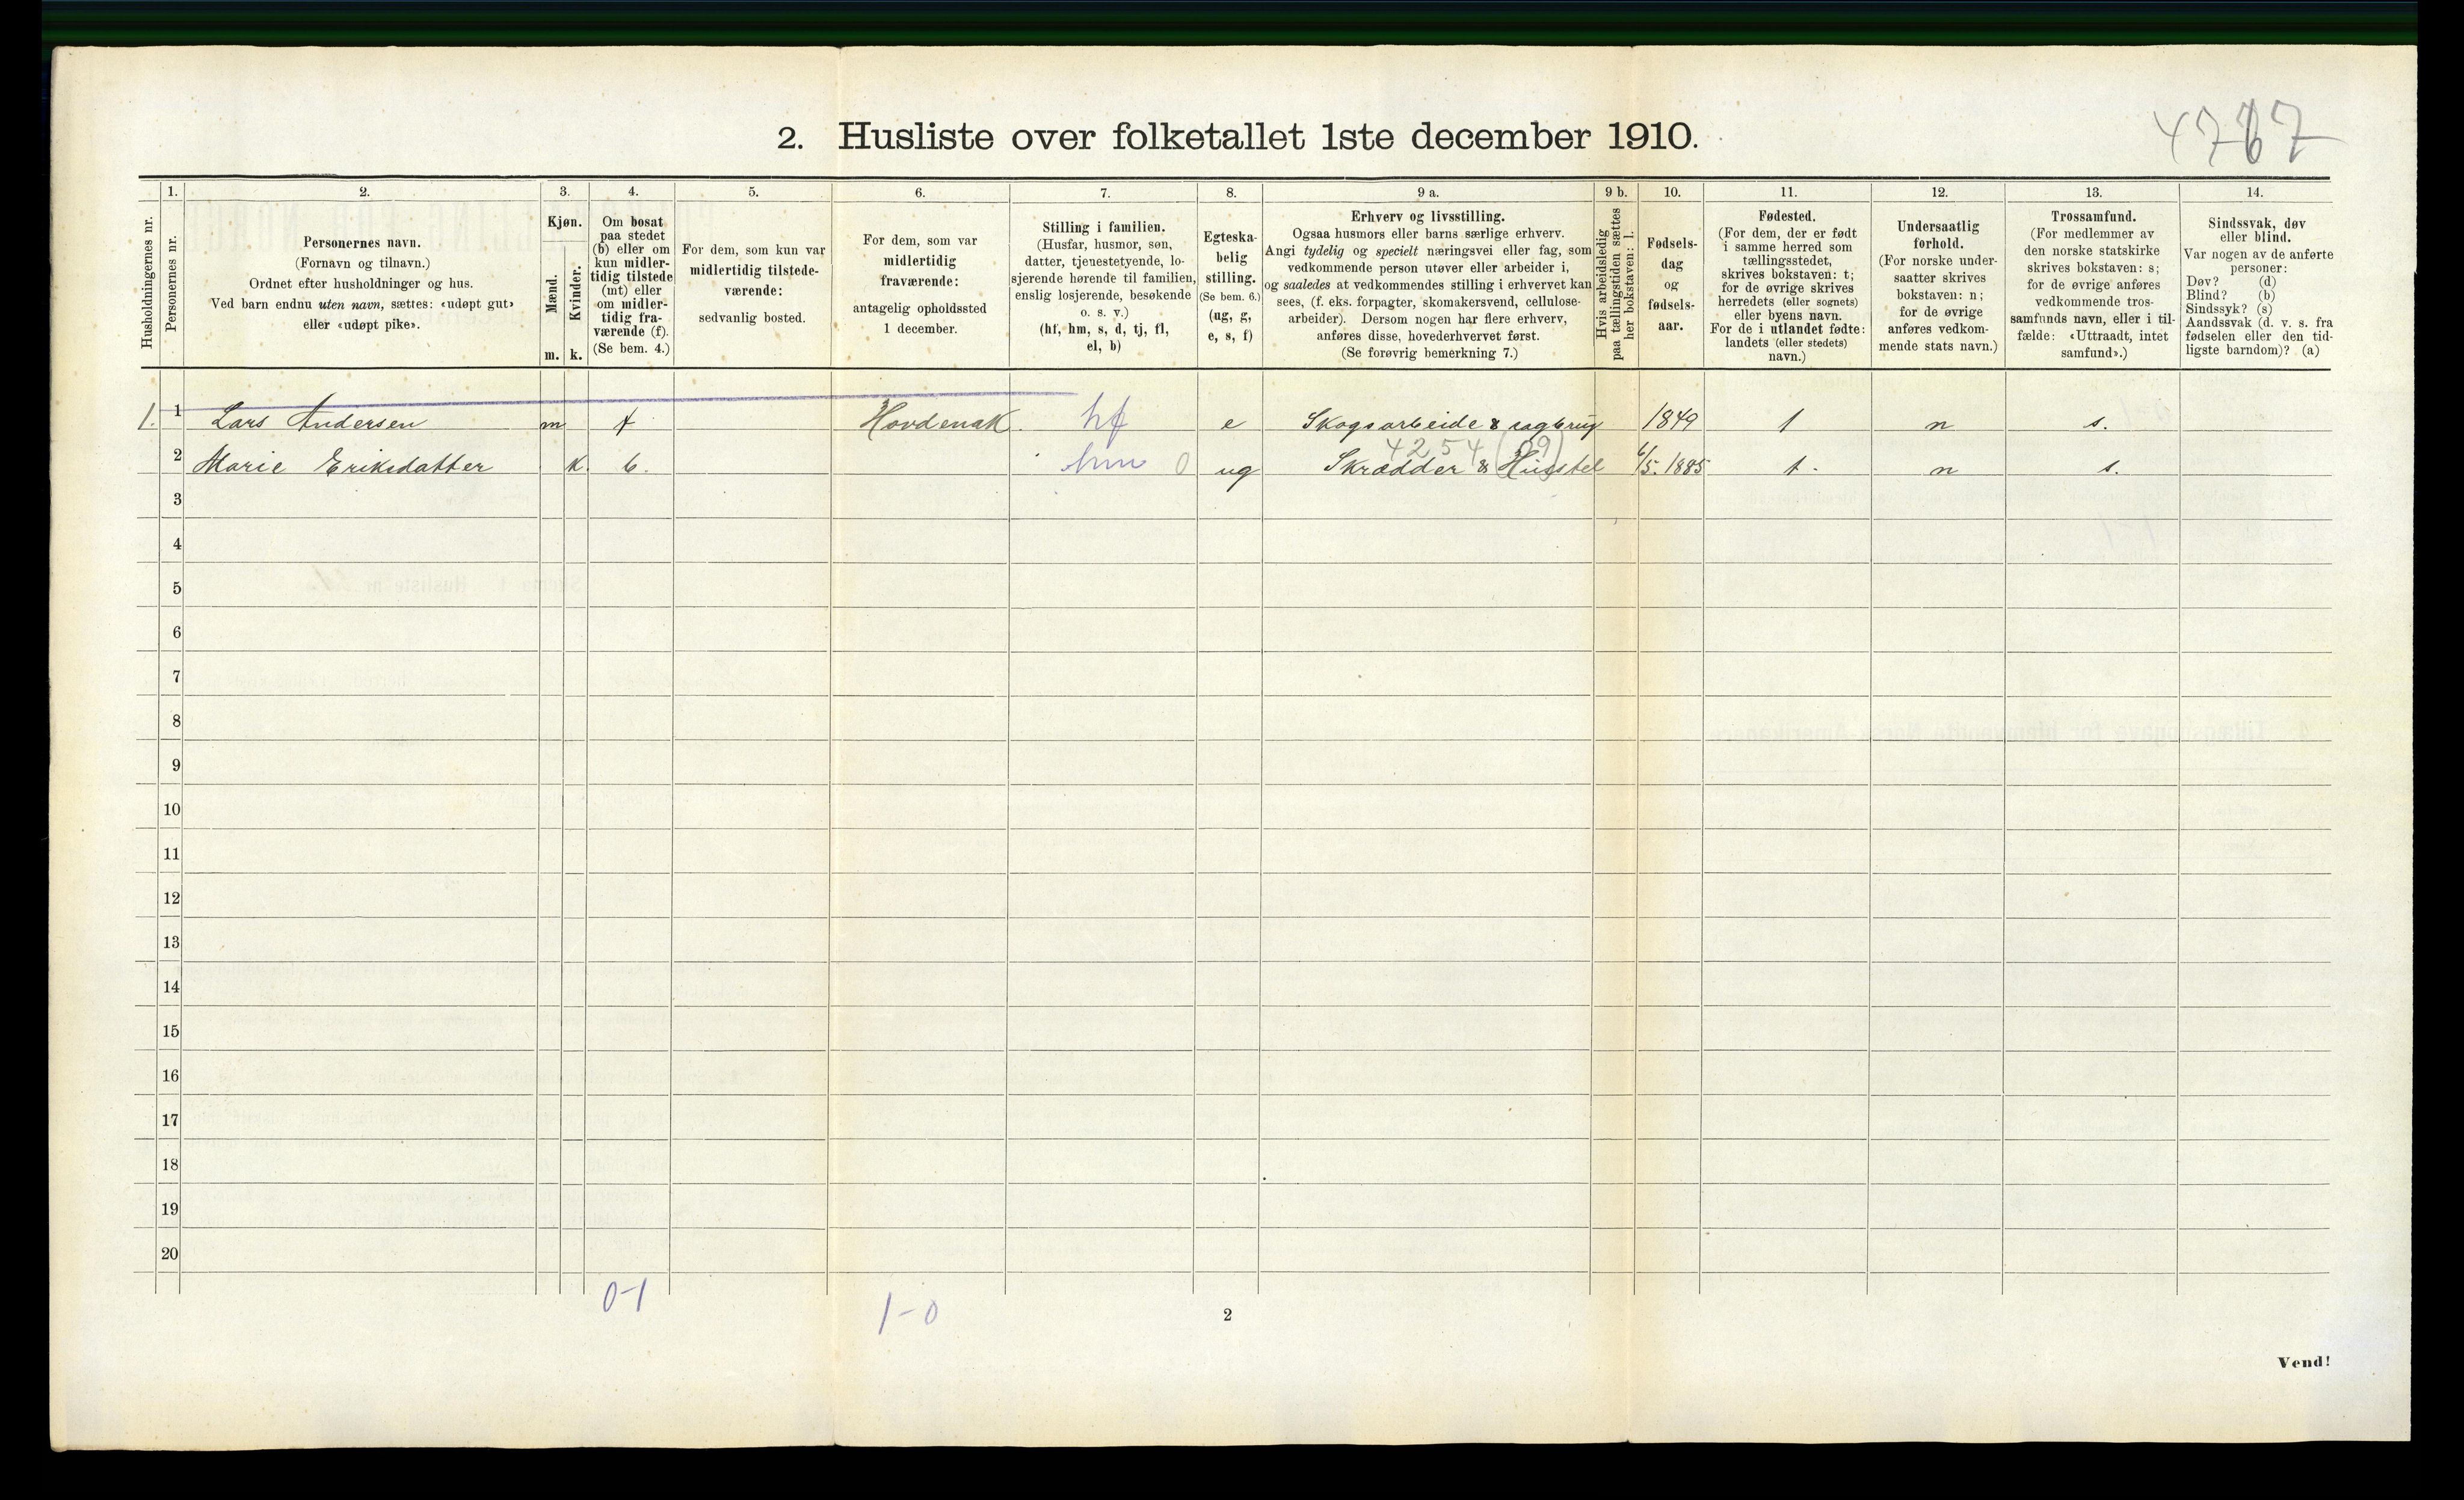 4767
2. Husliste over folketallet 1ste december 1910.
Husholdningernes nr.
1.
Personernes nr.
2.
Personernes navn.
(Fornavn og tilnavn.)
Ordnet efter husholdninger og hus.
Ved barn endnu uten navn, sættes: «udøpt gut»
eller «udøpt pike».
3.
Kjøn.
Mænd.
Kvinder.
m. k.
4.
Om bosat
paa stedet
(b) eller om
kun midler-
tidig tilstede
(mt) eller
om midler-
tidig fra-
værende (f).
(Se bem. 4.)
5.
For dem, som kun var
midlertidig tilstede-
værende:
sedvanlig bosted.
6.
For dem, som var
midlertidig
fraværende:
antagelig opholdssted
1 december.
7.
Stilling i familien.
(Husfar, husmor, søn,
datter, tjenestetyende, lo-
sjerende hørende til familien,
enslig losjerende, besøkende
o. s. v.)
(hf, hm, s, d, tj, fl,
el, b)
8.
Egteska-
belig
stilling.
(Se bem. 6.)
(ug, g,
e, s, f)
9 a.
Erhverv og livsstilling.
Ogsaa husmors eller barns særlige erhverv.
Angi tydelig og specielt næringsvei eller fag, som
vedkommende person utøver eller arbeider i,
og saaledes at vedkommendes stilling i erhvervet kan
sees, (f. eks. forpagter, skomakersvend, cellulose-
arbeider). Dersom nogen har flere erhverv,
anføres disse, hovederhvervet først.
(Se forøvrig bemerkning 7.)
9 b.
Hvis arbeidsledig
paa tællingstiden sættes
her bokstaven: l.
10.
Fødsels-
dag
og
fødsels-
aar.
11.
Fødested.
(For dem, der er født
i samme herred som
tællingsstedet,
skrives bokstaven: t;
for de øvrige skrives
herredets (eller sognets)
eller byens navn.
For de i utlandet fødte:
landets (eller stedets)
navn.)
12.
Undersaatlig
forhold.
(For norske under-
saatter skrives
bokstaven: n;
for de øvrige
anføres vedkom-
mende stats navn.)
13.
Trossamfund.
(For medlemmer av
den norske statskirke
skrives bokstaven: s;
for de øvrige anføres
vedkommende tros-
samfunds navn, eller i til-
fælde: «Uttraadt, intet
samfund».)
14.
Sindssvak, døv
eller blind.
Var nogen av de anførte
personer:
Døv? (d)
Blind? (b)
Sindssyk? (s)
Aandssvak (d. v. s. fra
fødselen eller den tid-
ligste barndom)? (a)
1. 1 Lars Andersen m f Hovdenak hf e Skogsarbeide & sagbrug 1849 t n s.
4254 (09)
2 Marie Eriksdatter k. b. hm 0 ug Skrædder & Husstel 6/5. 1885 t. n s.
3
4
5
6
7
8
9
10
11
12
13
14
15
16
17
18
19
20
0-1
1-0
2
Vend!